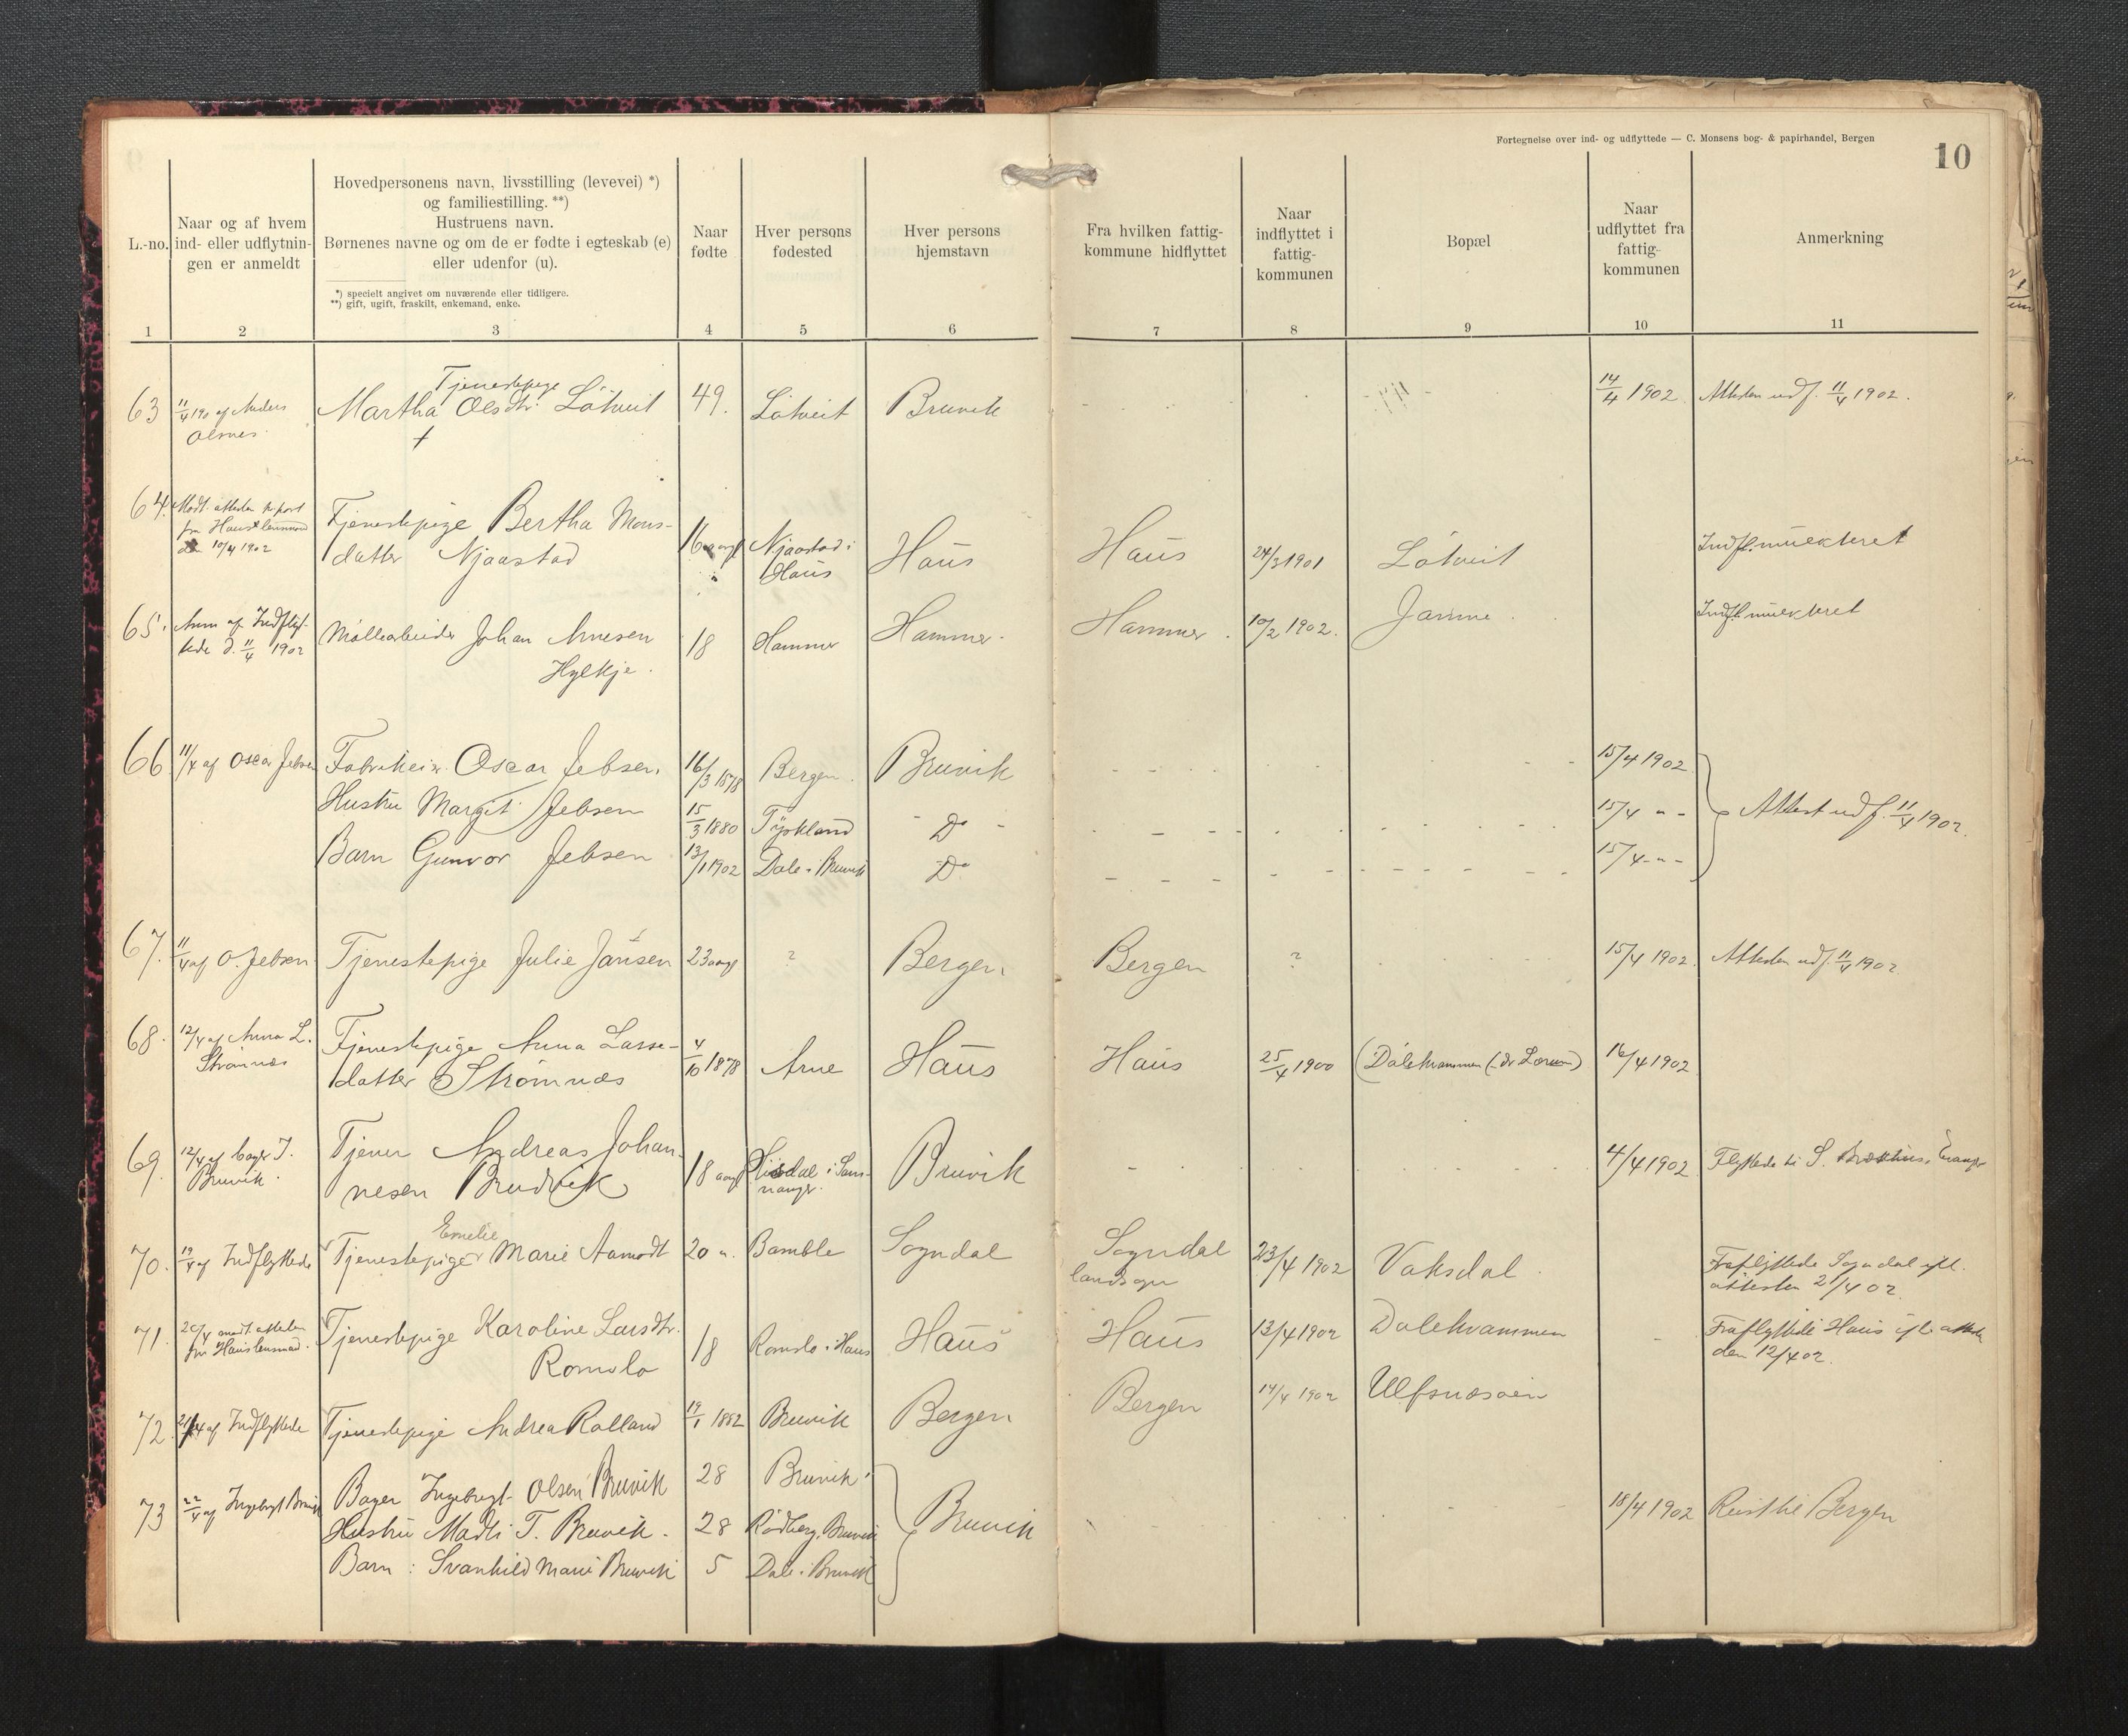 Fortegnelse over ind- og udflyttede — C. Monsens bog- & papirhandel, Bergen
10
L.-no.
Naar og af hvem
ind- eller udflytnin-
gen er anmeldt
Hovedpersonens navn, livsstilling (levevei) *)
og familiestilling. **)
Hustruens navn.
Børnenes navne og om de er fødte i egteskab (e)
eller udenfor (u).
*) specielt angivet om nuværende eller tidligere.
**) gift, ugift, fraskilt, enkemand, enke.
Naar
fødte
Hver persons
fødested
Hver persons
hjemstavn
Fra hvilken fattig-
kommune hidflyttet
Naar
indflyttet i
fattig-
kommunen
Bopæl
Naar
udflyttet fra
fattig-
kommunen
Anmerkning
1 2 3 4 5 6 7 8 9 10 11
Tjenestepige
63 11/4 190 af Anders Martha Olsdtr. Lötveit 49. Lötveit Bruvik 14/4 1902 Attesten udf. 11/4 1902.
Olsnes
64. Modt. attesten pr post Tjenestepige Bertha Mons-
fra Haus lensmand datter Njaastad 16 aargl Njaastad i Haus Haus 24/3 1901 Lötveit Indfl. mulkteret
den 10/4 1902 Haus
65. Anm af Indflyt- Möllearbeider Johan Arnesen 18 Hammer Hammer. Hammer. 10/2 1902. Jamne Indfl. mulkteret
tede d. 11/4 1902 Hylkje.
66 11/4 af Oscar Jebsen Fabrikeier Oscar Jebsen. 16/3 1878 Bergen. Bruvik 15/4 1902
Hustru Margit Jebsen 15/3 1880 Tyskland Do 15/4 - - Attest udf. 11/4 1902.
Barn Gunvor Jebsen 13/1 1902 Dale i Bruvik Do 15/4 - -
67. 11/4 af O. Jebsen Tjenestepige Julie Jansen 23 aargl ? Bergen. Bergen ? 15/4 1902. Attesten udf. 11/4 1902
68. 12/4 af Anna L. Tjenestepige Anna Lasse-
Strömnæs datter Strömnæs 4/10 1878 Arne Haus Haus 25/4 1900 Dalekvammen 16/4 1902
69. 12/4 af bager I. Tjener Andreas Johan-
Bruvik. nesen Brudvik 18 aargl i Sam- Bruvik 4/4 1902 Flyttede til S.
nanger.
Emelie
70. 19/4 af Indflyttede Tjenestepige Marie Aamodt 20 " Bamble Sogndal Sogndal 23/4 1902 Vaksdal Fraflyttede Sogndal ifl.
landsogn attesten 21/4 02.
71. 20/4 modt. attesten Tjenestepige Karoline Larsdtr. 18 Romslo i Haus Haus Haus 13/4 1902 Dalekvammen Fraflyttede Haus ifl. attest
fra Haus lensmand. Romslo den 12/4 02.
72. 21/4 af Indflyttede Tjenestepige Andrea Rolland 19/1 1882 Bruvik Bergen Bergen 14/4 1902 Ulfsnesöen
73 22/4 af Ingebrigt Bruvik Bager Ingebrigt Olsen Bruvik 28 Bruvik
Hustru Madli T. Bruvik. 28 Rödberg, Bruvik Bruvik 18/4 1902 Reist til Bergen
Barn: Svanhild Marie Bruvik 5 Dale i Bruvik